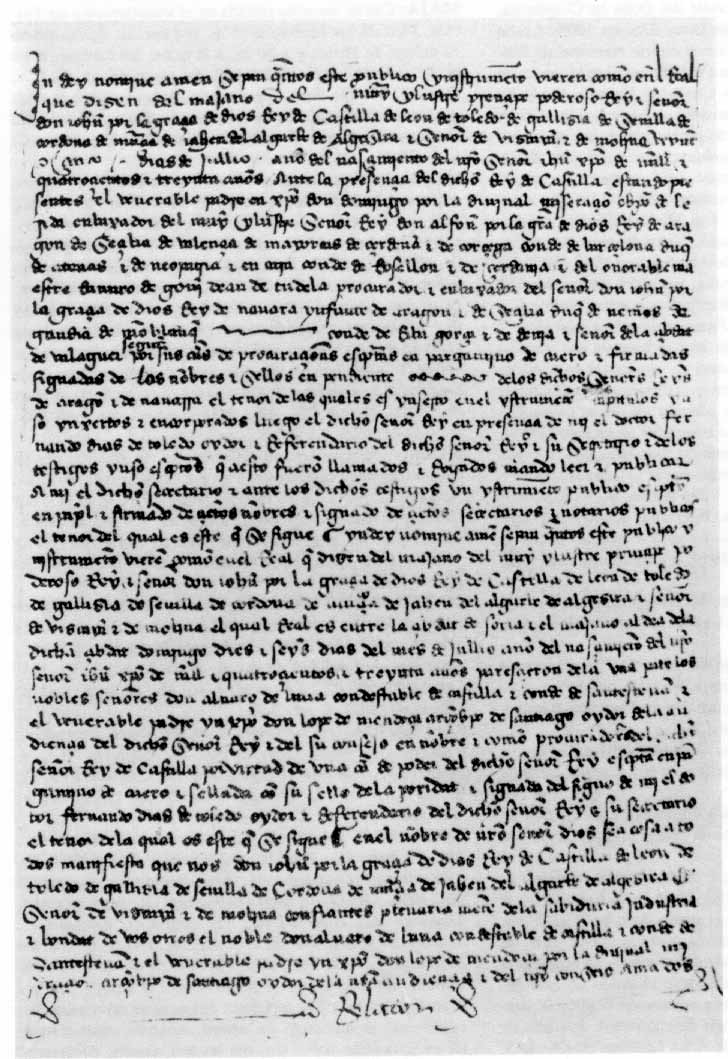 In dey nomine amen Sepan quantos este publico ynstrumento vieren como en el Real
que disen del majano del muy ylustre prinçipe poderoso Rey & señor
don iohan por la graçia de dios Rey de Castilla de leon de toledo de gallisia de Seuilla de
cordoua de murçia de jahen del algarbe de Algesira & Señor de viscaya & de molina
dias de jullio año del nasçimiento del nuestro Señor ihu xpo de mill &
quatroçientos & treynta años Ante la presençia del dicho Rey de Castilla estando pre
sentes el venerable padre en xpo don domingo por la diuinal miseraçion obispo de le
rida enbaxador del muy ylustre Señor Rey don alfonso por la graçia de dios Rey de ara
gon de Seçilia de valençia de mayorcas de çerdeña & de corçega conde de barçelona duque
de atenas & de neopatria & en aqui conde de Rosellon & de çerdania & del onorable ma
estre dean de tudela procurador & enbaxador del señor don iohan por
la graçia de dios Rey de nauarra ynfante de aragon & de Seçilia duque de nemos de
gandia de monblanque conde de Ribagorça & de denia & señor de la çibdat
de valaguer segunt por sus cartas de procuraçiones escriptas en pargamino de cuero & firmadas
signadas de los nonbres & sellos en pendiente de los dichos Señores Reyes
de aragon & de nauarra el tenor de las quales es ynserto en el ynstrumento
so ynxertos & encorporados luego el dicho señor Rey en presençia de mi el doctor fer
nando dias de toledo oydor & Referendario del dicho señor Rey & su Secretario & de los
testigos yuso escriptos que a esto fueron llamados & Rogados mando leer & publicar
A mi el dicho secretario & ante los dichos testigos vn ystrumento publico escripto
en papel & firmado de çiertos nonbres & signado de çiertos secretarios & notarios publicos
el tenor del qual es este que se sigue yn dey nomine amen sepan quantos este publico y
nstrumento vieren como en el Real que disen del majano del muy ylustre prinçipe po
deroso Rey & señor don iohan por la graçia de dios Rey de Castilla de leon de toledo
de gallisia de seuilla de cordoua de murçia de Jahen del algarbe de algesira & señor
de viscaya & de molina el qual Real es entre la çibdat de soria & el majano aldea de la
dicha çibdat domingo dies & seys dias del mes de Jullio año del nasçimiento del nuestro
señor ihu xpo de mill & quatroçientos & treynta años paresçieron de la vna parte los
nobles señores don aluaro de luna condestable de castilla & conde de santesteuan &
el venerable padre yn xpo don lope de mendoça arçobispo de santiago oydor de la au
diençia del dicho Señor Rey & del su consejo en nonbre & como procuradores del dicho
señor Rey de Castilla por virtud de vna carta de poder del dicho señor Rey escripta en par
gamino de cuero & sellada con su sello de la poridat & signada del signo de mi el do
tor fernando dias de toledo oydor & Referendario del dicho señor Rey & su secretario
el tenor de la qual es este que se sigue en el nonbre de nuestro señor dios sea cosa a to
dos manifiesta que nos don iohan por la graçia de dios Rey de Castilla de leon de
toledo de gallisia de seuilla de Cordoua de murçia de Jahen del algarbe de algesira &
Señor de viscaya & de molina confiantes plenaria mente de la sabiduria Industria
& lealtat de vos otros el noble don aluaro de luna condestable de castilla & conde de
santesteuan & el venerable padre yn xpo don lope de mendoça por la diuinal mi
arçobispo de santiago oydor de la nuestra audiençia & del nuestro consejo amados